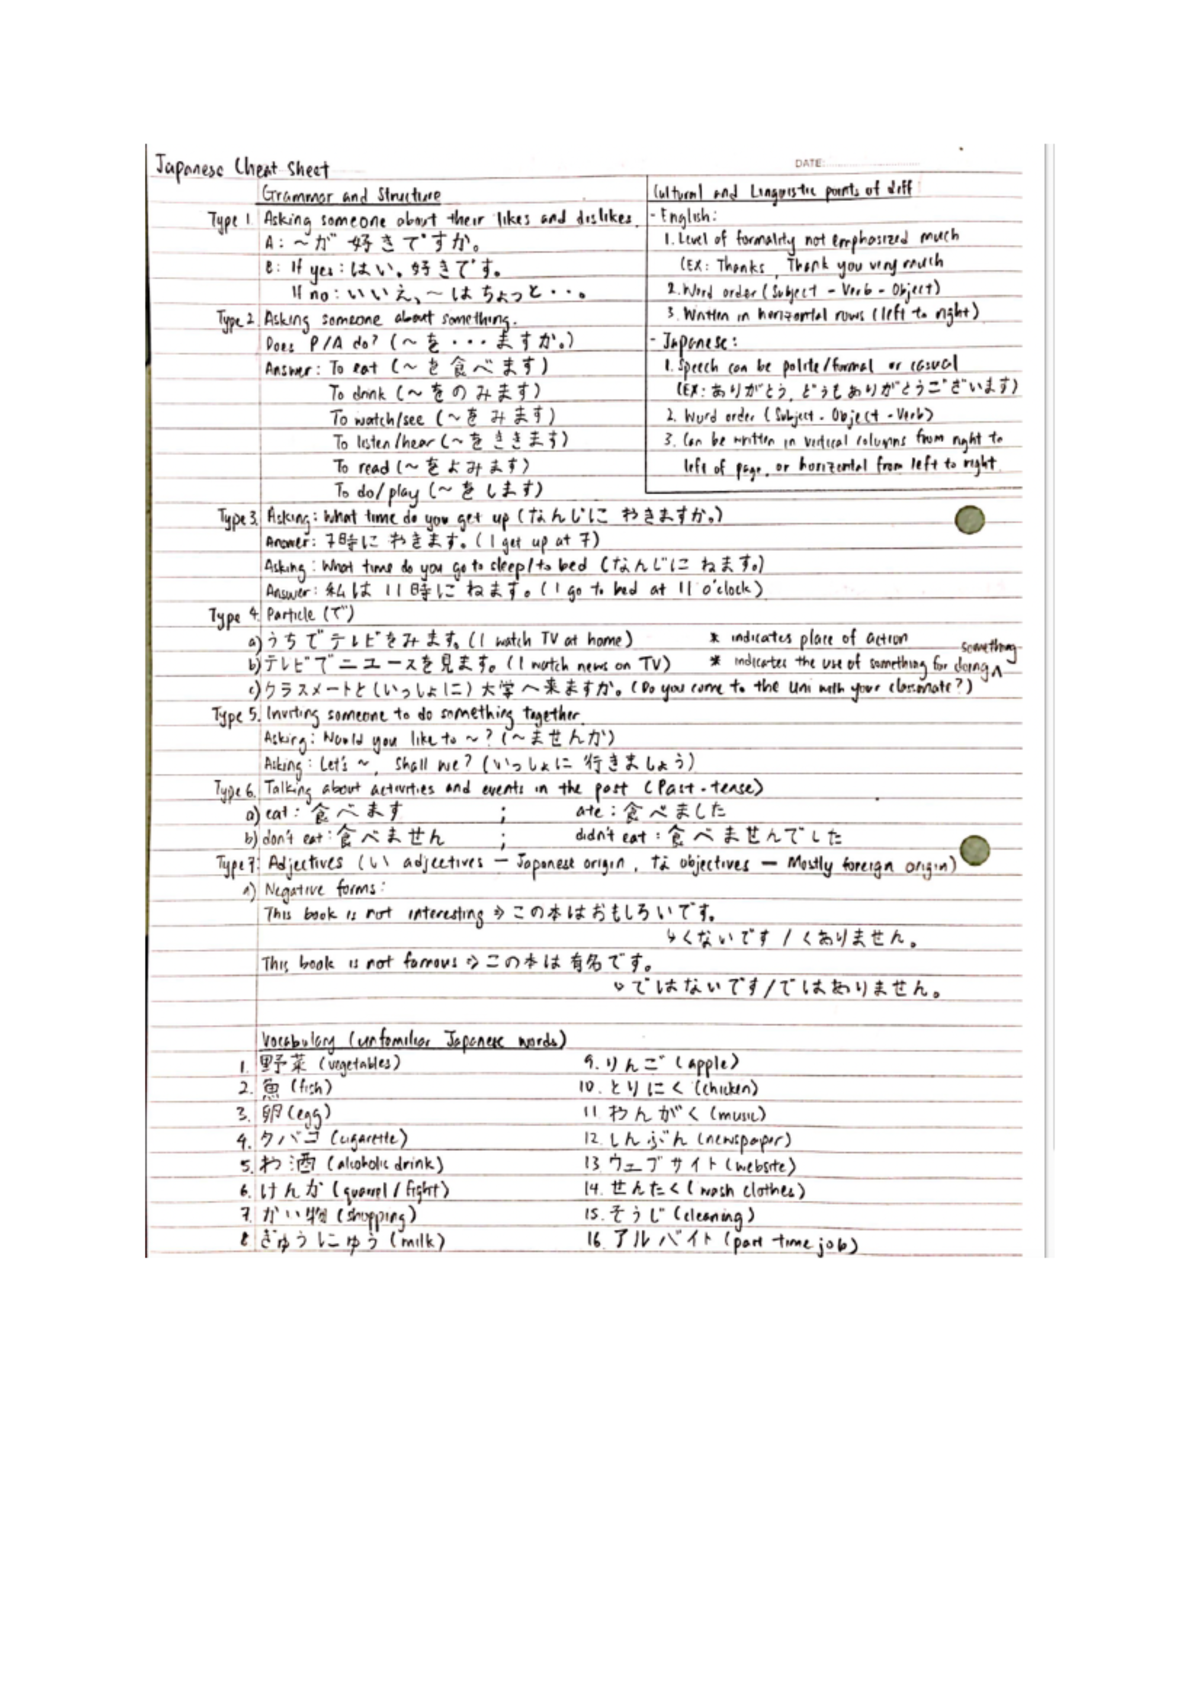 Japanese Cheat Sheet
DATE:
Grammar and Structure
Type 1. Asking someone about their likes and dislikes.
A: ～が 好きですか。
B: If yes: はい。好きです。
If no: いいえ、～はちょっと・・。
Type 2. Asking someone about something.
Does P/A do? (～を・・・ますか。)
Answer: To eat (～を食べます)
To drink (～をのみます)
To watch/see (～をみます)
To listen/hear (～をききます)
To read (～をよみます)
To do/play (～をします)
Cultural and Linguistic points of diff
- English:
1. Level of formality not emphasized much
(EX: Thanks, Thank you very much
2. Word order (Subject - Verb - Object)
3. Written in horizontal rows (left to right)
- Japanese:
1. Speech can be polite/formal or casual
(EX: ありがとう, どうもありがとうございます)
2. Word order (Subject - Object - Verb)
3. Can be written in vertical columns from right to
left of page, or horizontal from left to right
Type 3. Asking: What time do you get up (なんじに おきますか。)
Answer: 7時に おきます。(I get up at 7)
Asking: What time do you go to sleep/to bed (なんじに ねます。)
Answer: 私は 11時に ねます。(I go to bed at 11 o'clock)
Type 4. Particle (で)
a) うちでテレビをみます。(I watch TV at home) * indicates place of action
b) テレビでニュースを見ます。(I watch news on TV) * indicates the use of something for doing ^ something
c) クラスメートと(いっしょに)大学へ来ますか。(Do you come to the uni with your classmate?)
Type 5. Inviting someone to do something together
Asking: Would you like to ~? (～ませんか)
Asking: Let's ~, Shall we? (いっしょに 行きましょう)
Type 6. Talking about activities and events in the past (Past-tense)
a) eat: 食べます ; ate: 食べました
b) don't eat: 食べません ; didn't eat: 食べませんでした
Type 7. Adjectives (い adjectives – Japanese origin, な objectives – Mostly foreign origin)
a) Negative forms:
This book is not interesting ⇒ この本はおもしろいです。
↳くないです / くありません。
This book is not famous ⇒ この本は有名です。
↳ではないです/ではありません。
Vocabulary (unfamiliar Japanese words)
1. 野菜 (vegetables) 9. りんご (apple)
2. 魚 (fish) 10. とりにく (chicken)
3. 卵 (egg) 11. おんがく (music)
4. タバコ (cigarette) 12. しんぶん (newspaper)
5. お酒 (alcoholic drink) 13. ウェブサイト (website)
6. けんか (quarrel / fight) 14. せんたく (wash clothes)
7. かい物 (shopping) 15. そうじ (cleaning)
8 ぎゅうにゅう (milk) 16. アルバイト (part time job)